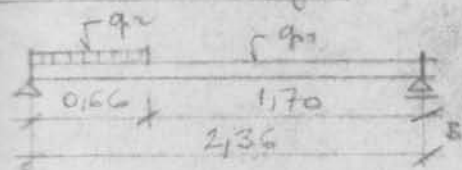 q2 q1
0,66 1,70
2,36 B